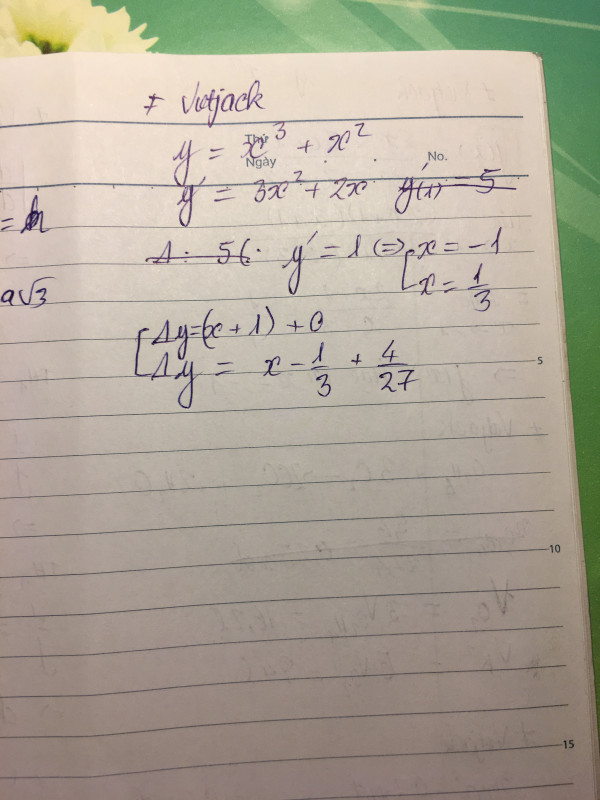 + Vietjack
Thứ
Ngày
No.
y = x³ + x²
y' = 3x² + 2x y'(1) = 5
= h
Δ: 5(. y' = 1 (=) [x = -1
x = 1/3
a√3
[Δy=(x + 1) + 0
Δy = x - 1/3 + 4/27
5
10
15